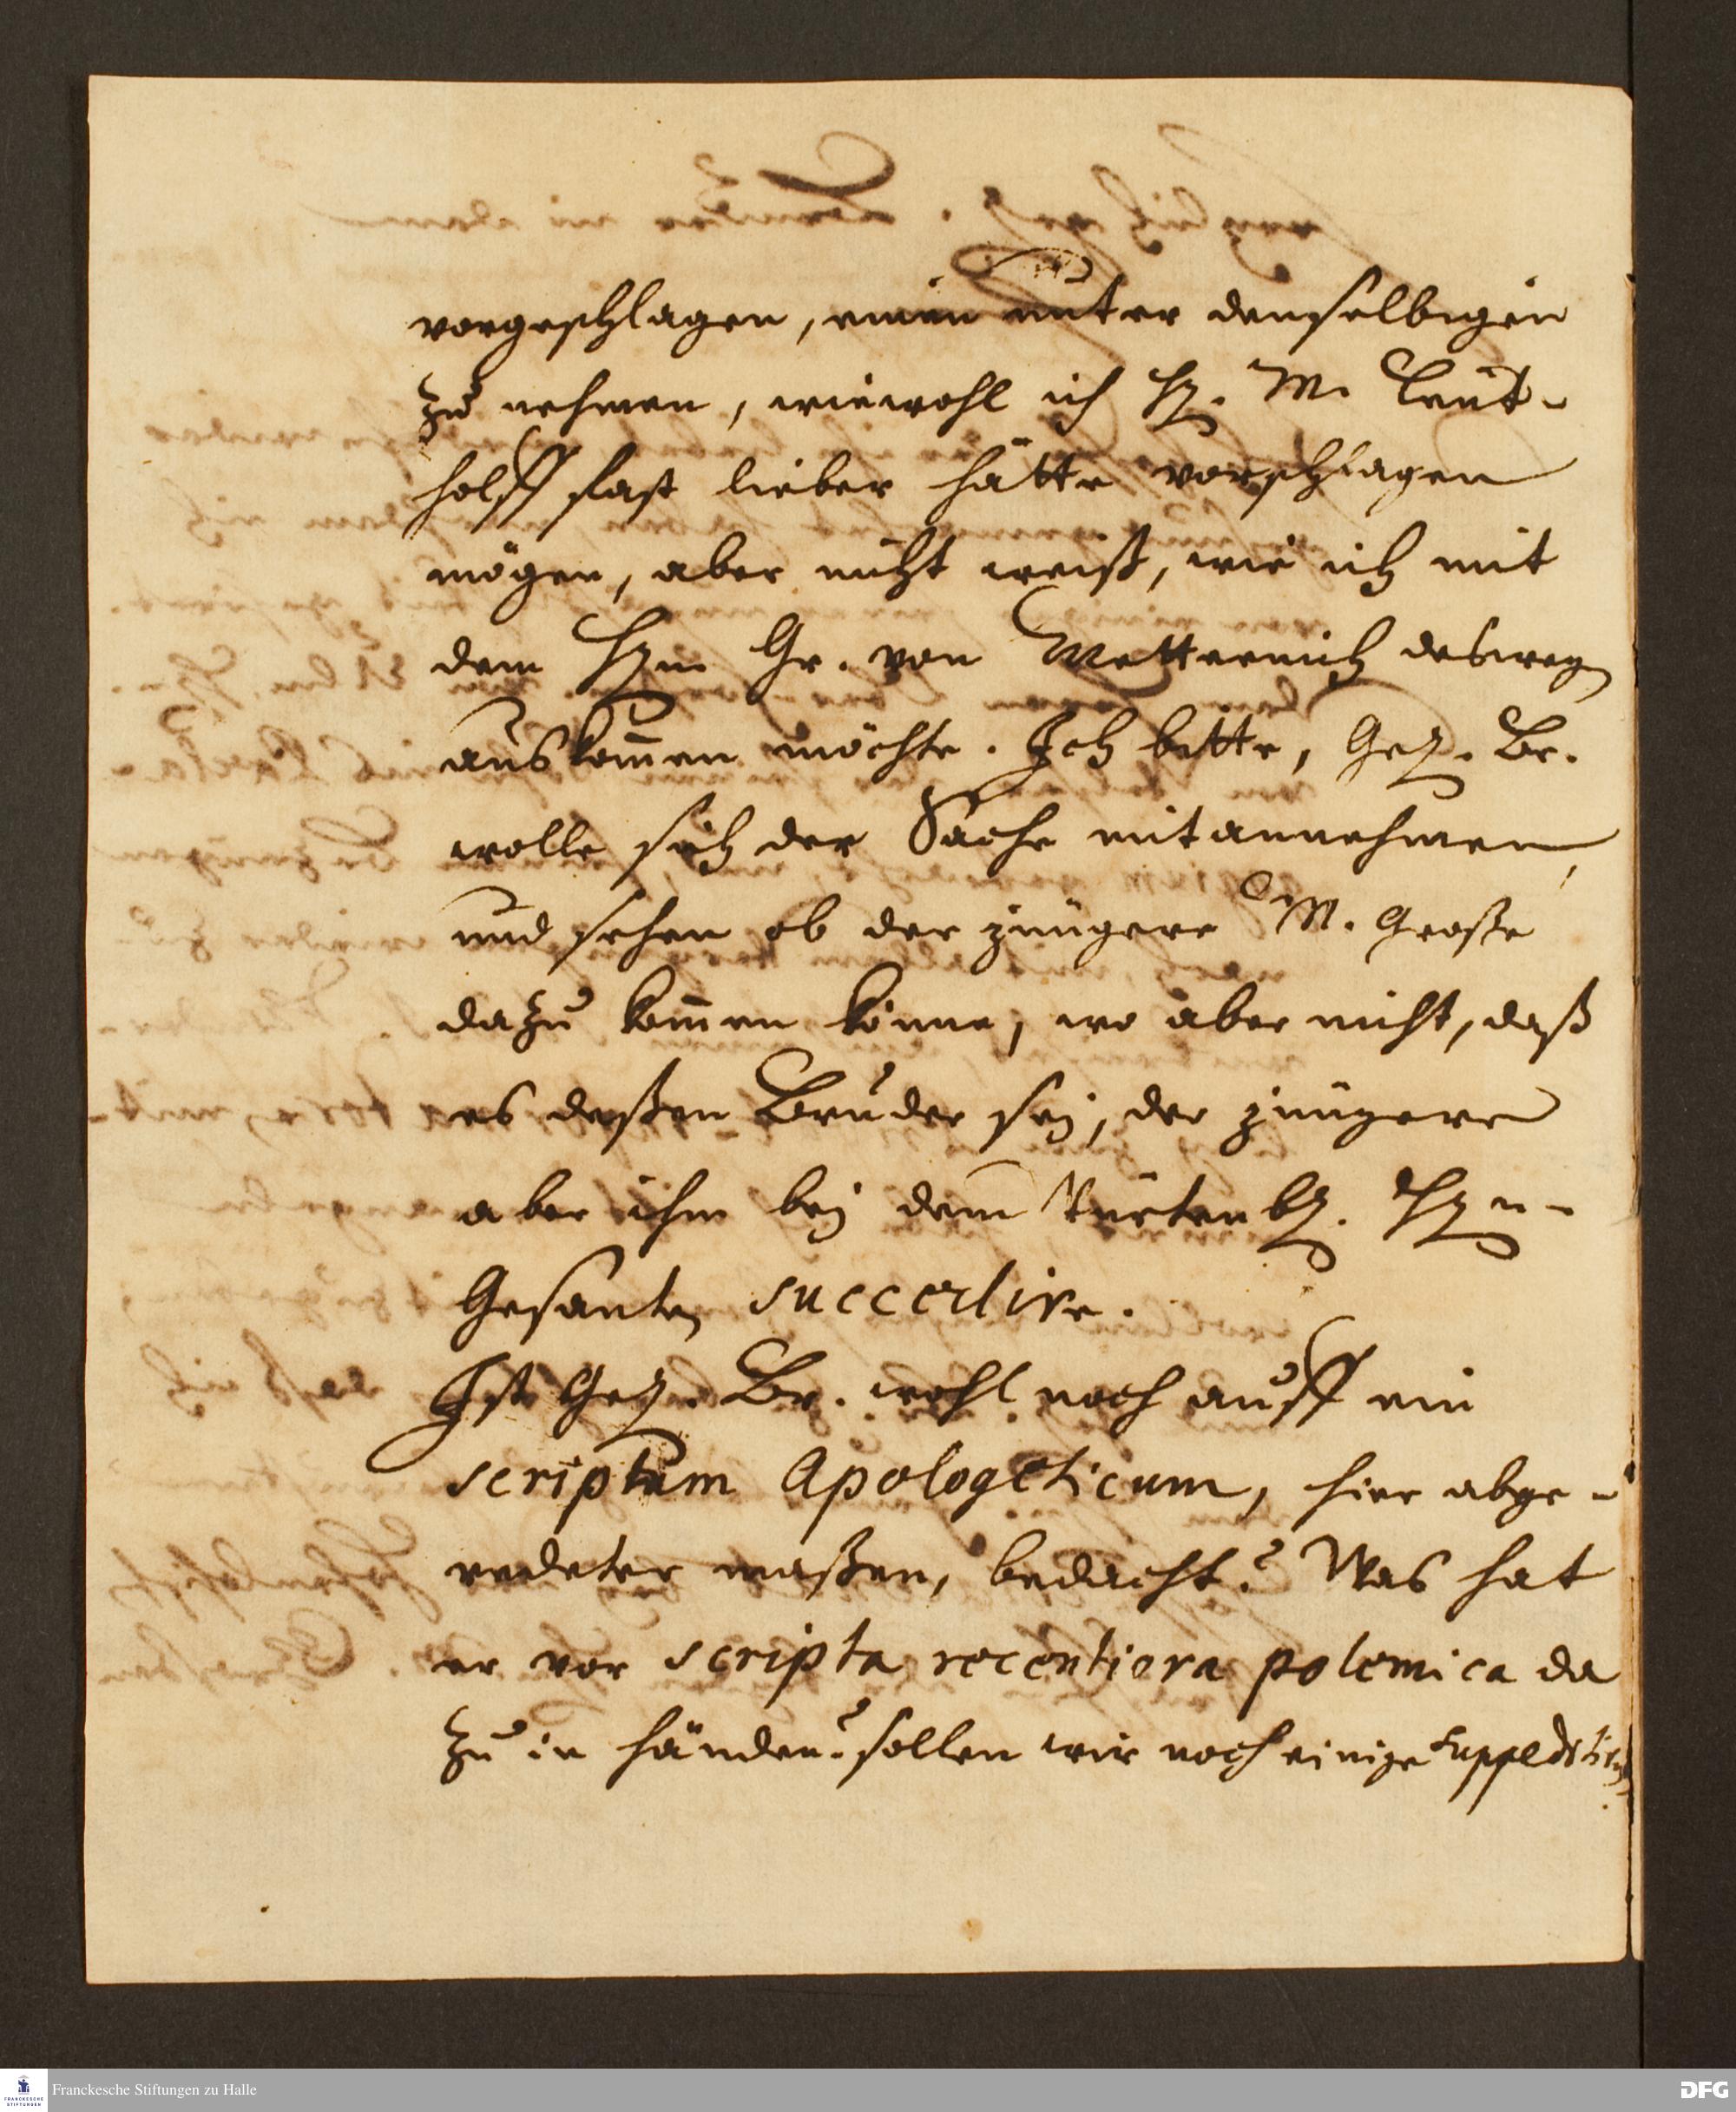 vorgeschlagen, einen unter denselbigen
zu nehmen, wiewohl ich H. M. Leut-
holff fast lieber hätte vorschlagen
mögen, aber nicht weiß, wie ich mit
dem Hrn Gr. von Metternich deswegen
auskom̄en möchte. Ich bitte, Gel. Br.
wolle sich der Sache mitannehmen,
und sehen ob der jüngere M. Große
dazu kom̄en könne, wo aber nicht, daß
es deßen Bruder sey, der jüngere
aber ihm bey dem Hrn-
Gesanten succedire.
Ist Gel. Br. wohl noch auff ein
scriptum Apologeticum, hier abge-
redeter maßen, bedacht? Was hat
er vor scripta recentiora polemica da
zu in händen? sollen wir noch einige suppeditiren
Franckesche Stiftungen zu Halle
FRANCKESCHE
STIFTUNGEN
DFG